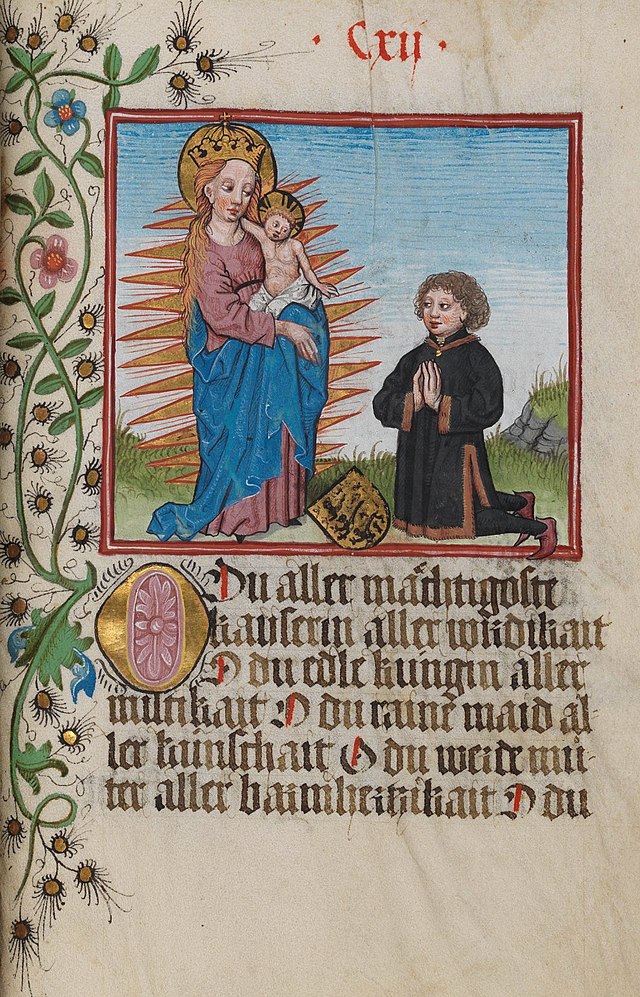 · Cxij ·
O Du aller mächtigoste
kayserin aller wirdikait
O du edle kungin aller
miltikait O du raine maid al-
ler künschait O du werde mů-
ter aller barmhertzikait O du